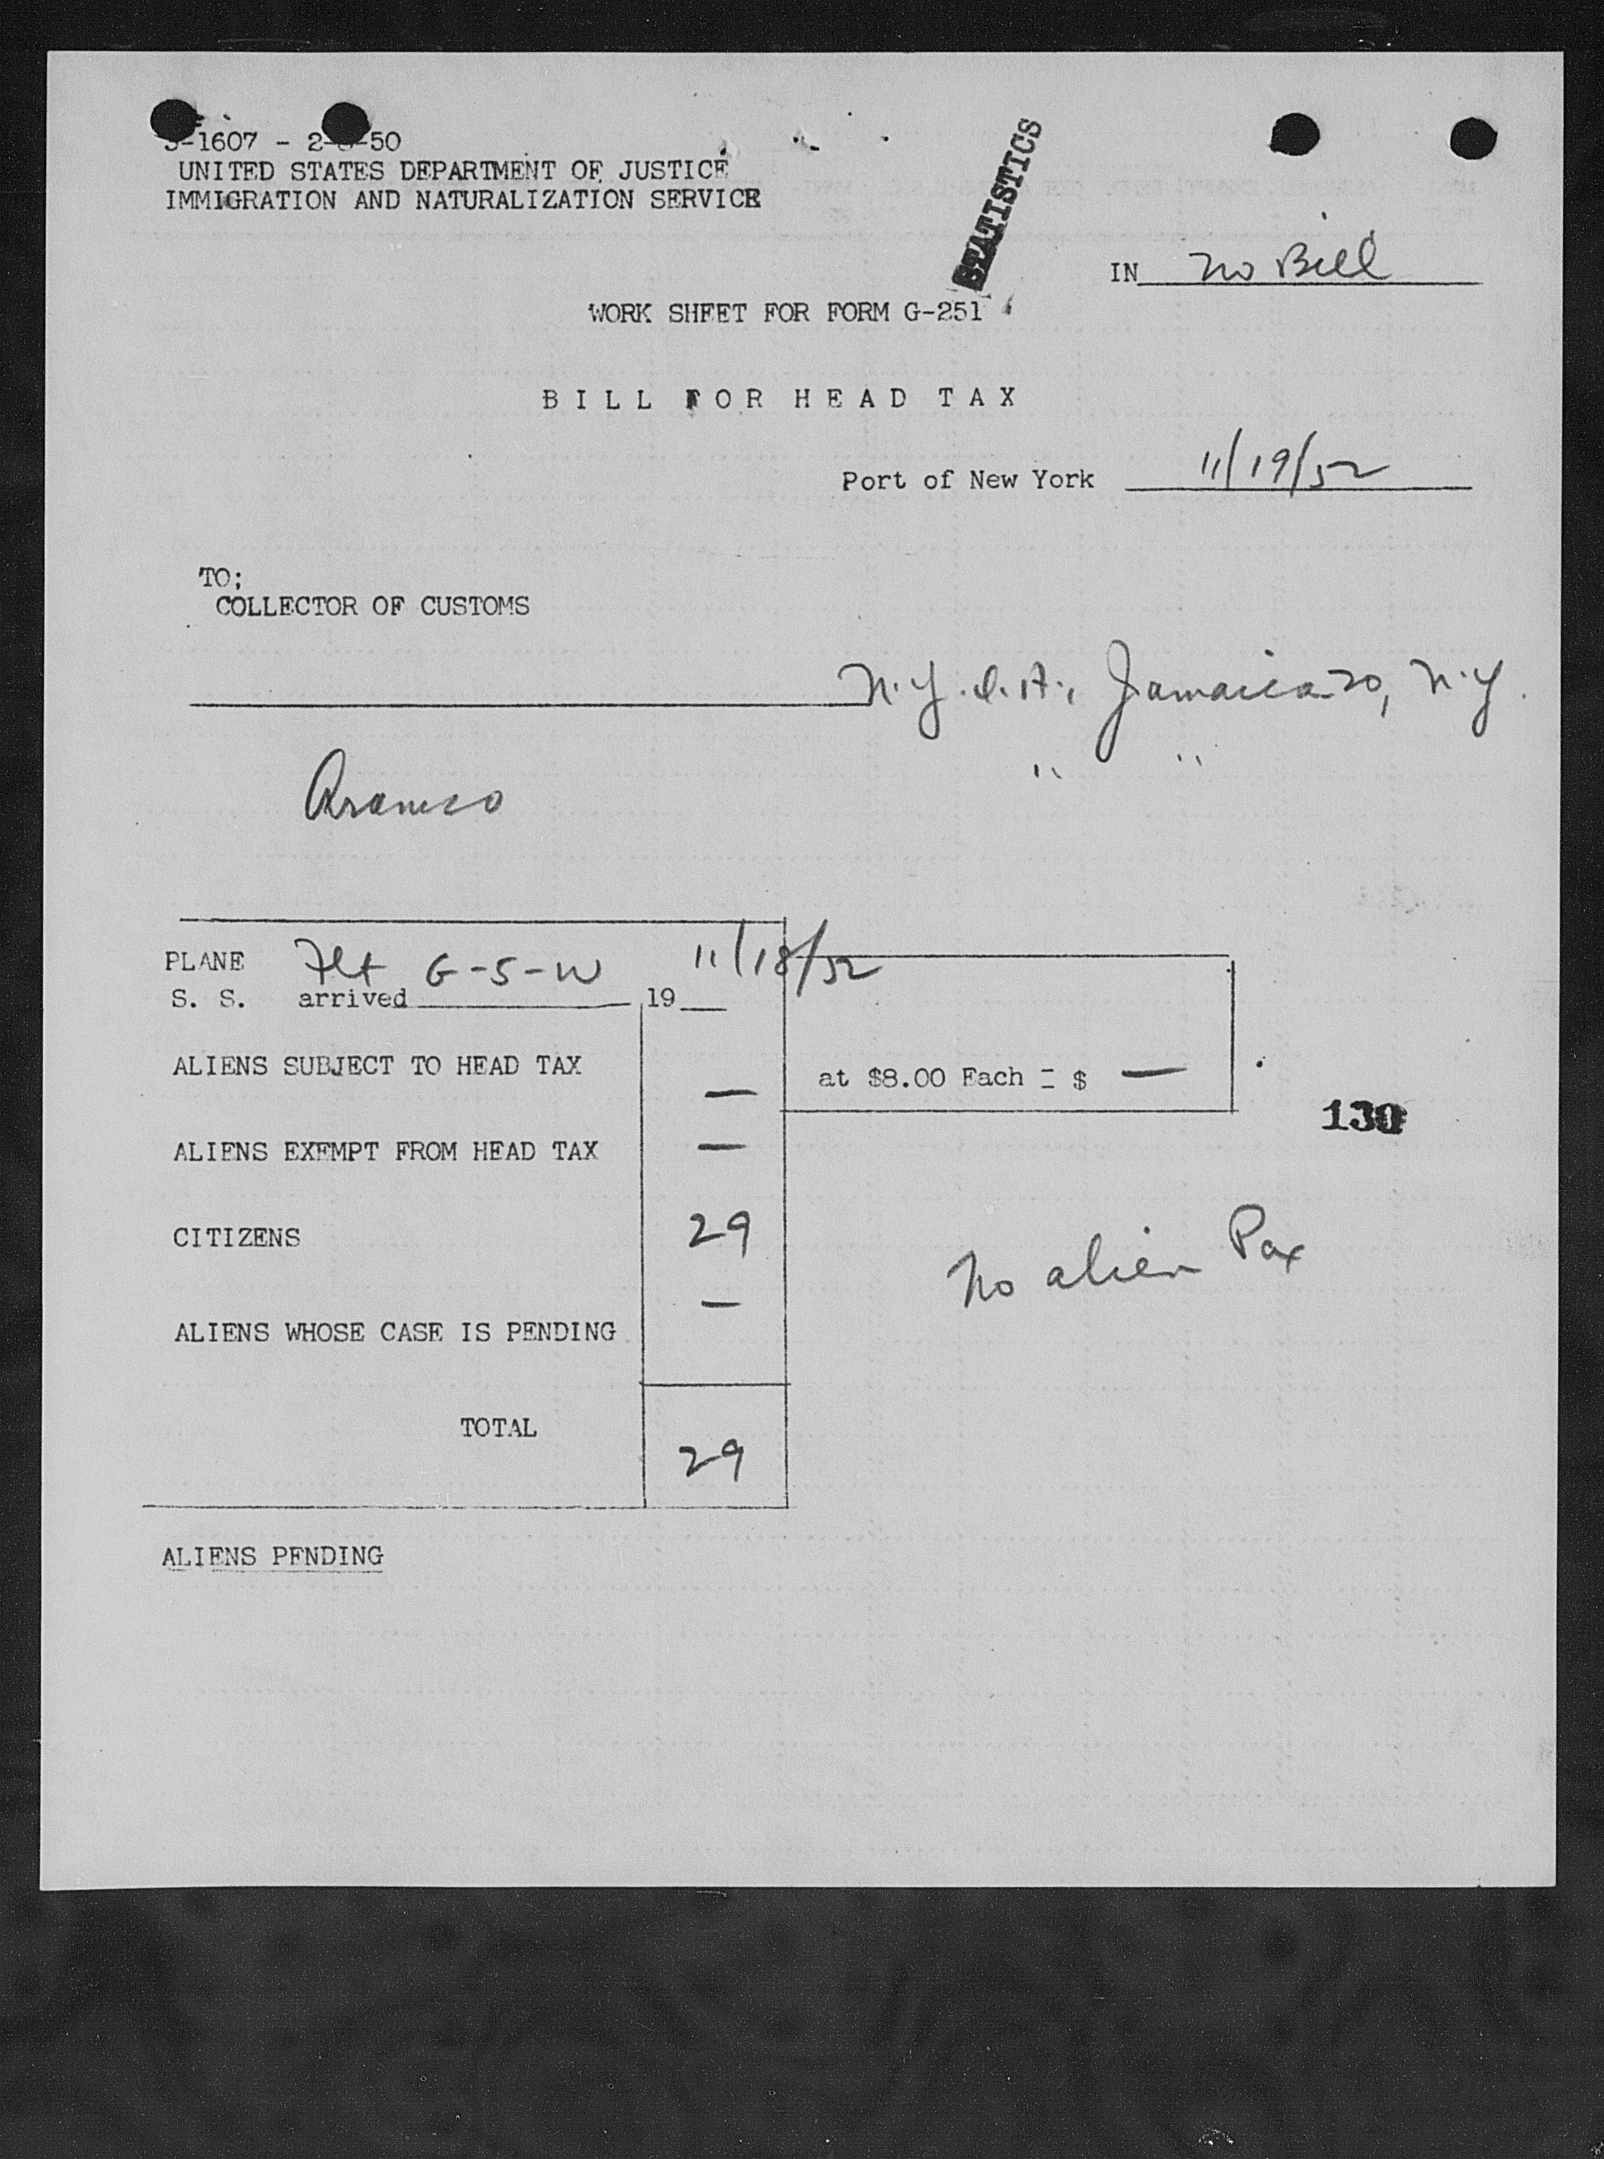 -1607 - 2- -50
UNITED STATES DEPARTMENT OF JUSTICE
IMMIGRATION AND NATURALIZATION SERVICE
STATISTICS
IN No Bill
WORK SHEET FOR FORM G-251
BILL FOR HEAD TAX
Port of New York 11/19/52
TO:
COLLECTOR OF CUSTOMS
N.Y.I.A., Jamaica 20, N.Y.
" "
Aramco
PLANE Flt G-5-W 11/18/52
S. S. arrived 19
ALIENS SUBJECT TO HEAD TAX — at $8.00 Each = $ —
130
ALIENS EXEMPT FROM HEAD TAX —
CITIZENS 29
No alien Pax
ALIENS WHOSE CASE IS PENDING —
TOTAL 29
ALIENS PENDING